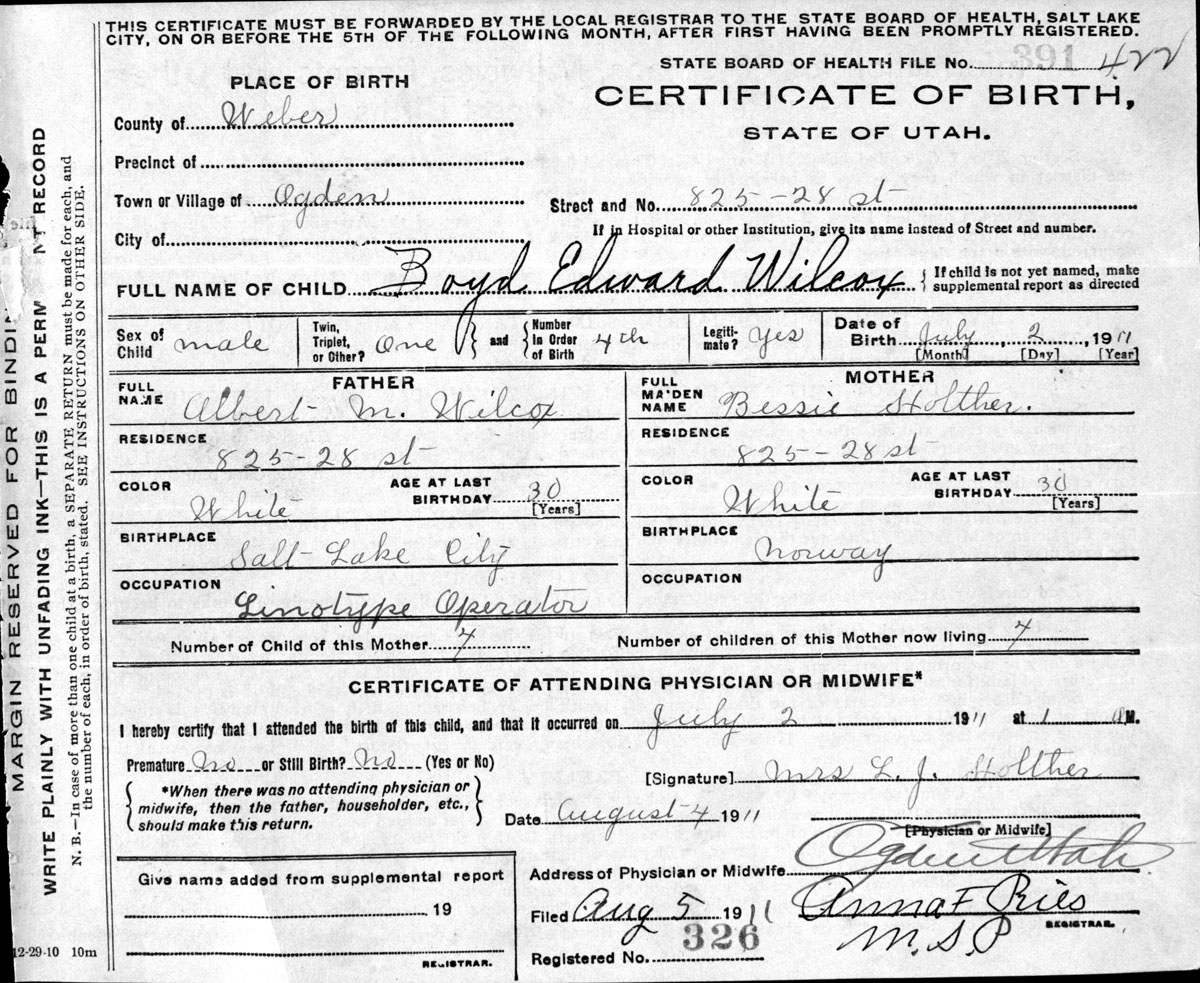 THIS CERTIFICATE MUST BE FORWARDED BY THE LOCAL REGISTRAR TO THE STATE BOARD OF HEALTH, SALT LAKE
CITY, ON OR BEFORE THE 5TH OF THE FOLLOWING MONTH, AFTER FIRST HAVING BEEN PROMPTLY REGISTERED.
STATE BOARD OF HEALTH FILE No. 391 422
PLACE OF BIRTH
CERTIFICATE OF BIRTH,
STATE OF UTAH.
County of Weber
Precinct of
Town or Village of Ogden
Street and No. 825-28 st
City of
If in Hospital or other Institution, give its name instead of Street and number.
FULL NAME OF CHILD Boyd Edward Wilcox { If child is not yet named, make
supplemental report as directed
Sex of Child male
Twin, Triplet, or Other? One } and { Number In Order of Birth 4th
Legiti-mate? Yes
Date of Birth July, 2, 1911
[Month] [Day] [Year]
FATHER
FULL NAME Albert M. Wilcox
RESIDENCE
825-28 st
COLOR White
AGE AT LAST BIRTHDAY 30
[Years]
BIRTHPLACE
Salt Lake City
OCCUPATION
Linotype Operator
MOTHER
FULL MAIDEN NAME Bessie Stolther.
RESIDENCE
825-28 st
COLOR White
AGE AT LAST BIRTHDAY 30
[Years]
BIRTHPLACE
Norway
OCCUPATION
Number of Child of this Mother 4
Number of children of this Mother now living 4
CERTIFICATE OF ATTENDING PHYSICIAN OR MIDWIFE*
I hereby certify that I attended the birth of this child, and that it occurred on July 2 1911 at 1 M.
Premature No or Still Birth? No (Yes or No)
[Signature] Mrs L. J. Stolther
*When there was no attending physician or
midwife, then the father, householder, etc.,
should make this return.
Date August 4 1911
[Physician or Midwife]
Give name added from supplemental report
19
REGISTRAR.
Address of Physician or Midwife Ogden Utah
Filed Aug 5 1911 Anna F Ries
REGISTRAR.
M.S.P
326
Registered No.
12-29-10 10m
MARGIN RESERVED FOR
WRITE PLAINLY WITH UNFADING INK—THIS IS A PERM NT RECORD
N. B.—In case of more than one child at a birth, a SEPARATE RETURN must be made for each, and
the number of each, in order of birth, stated. SEE INSTRUCTIONS ON OTHER SIDE.